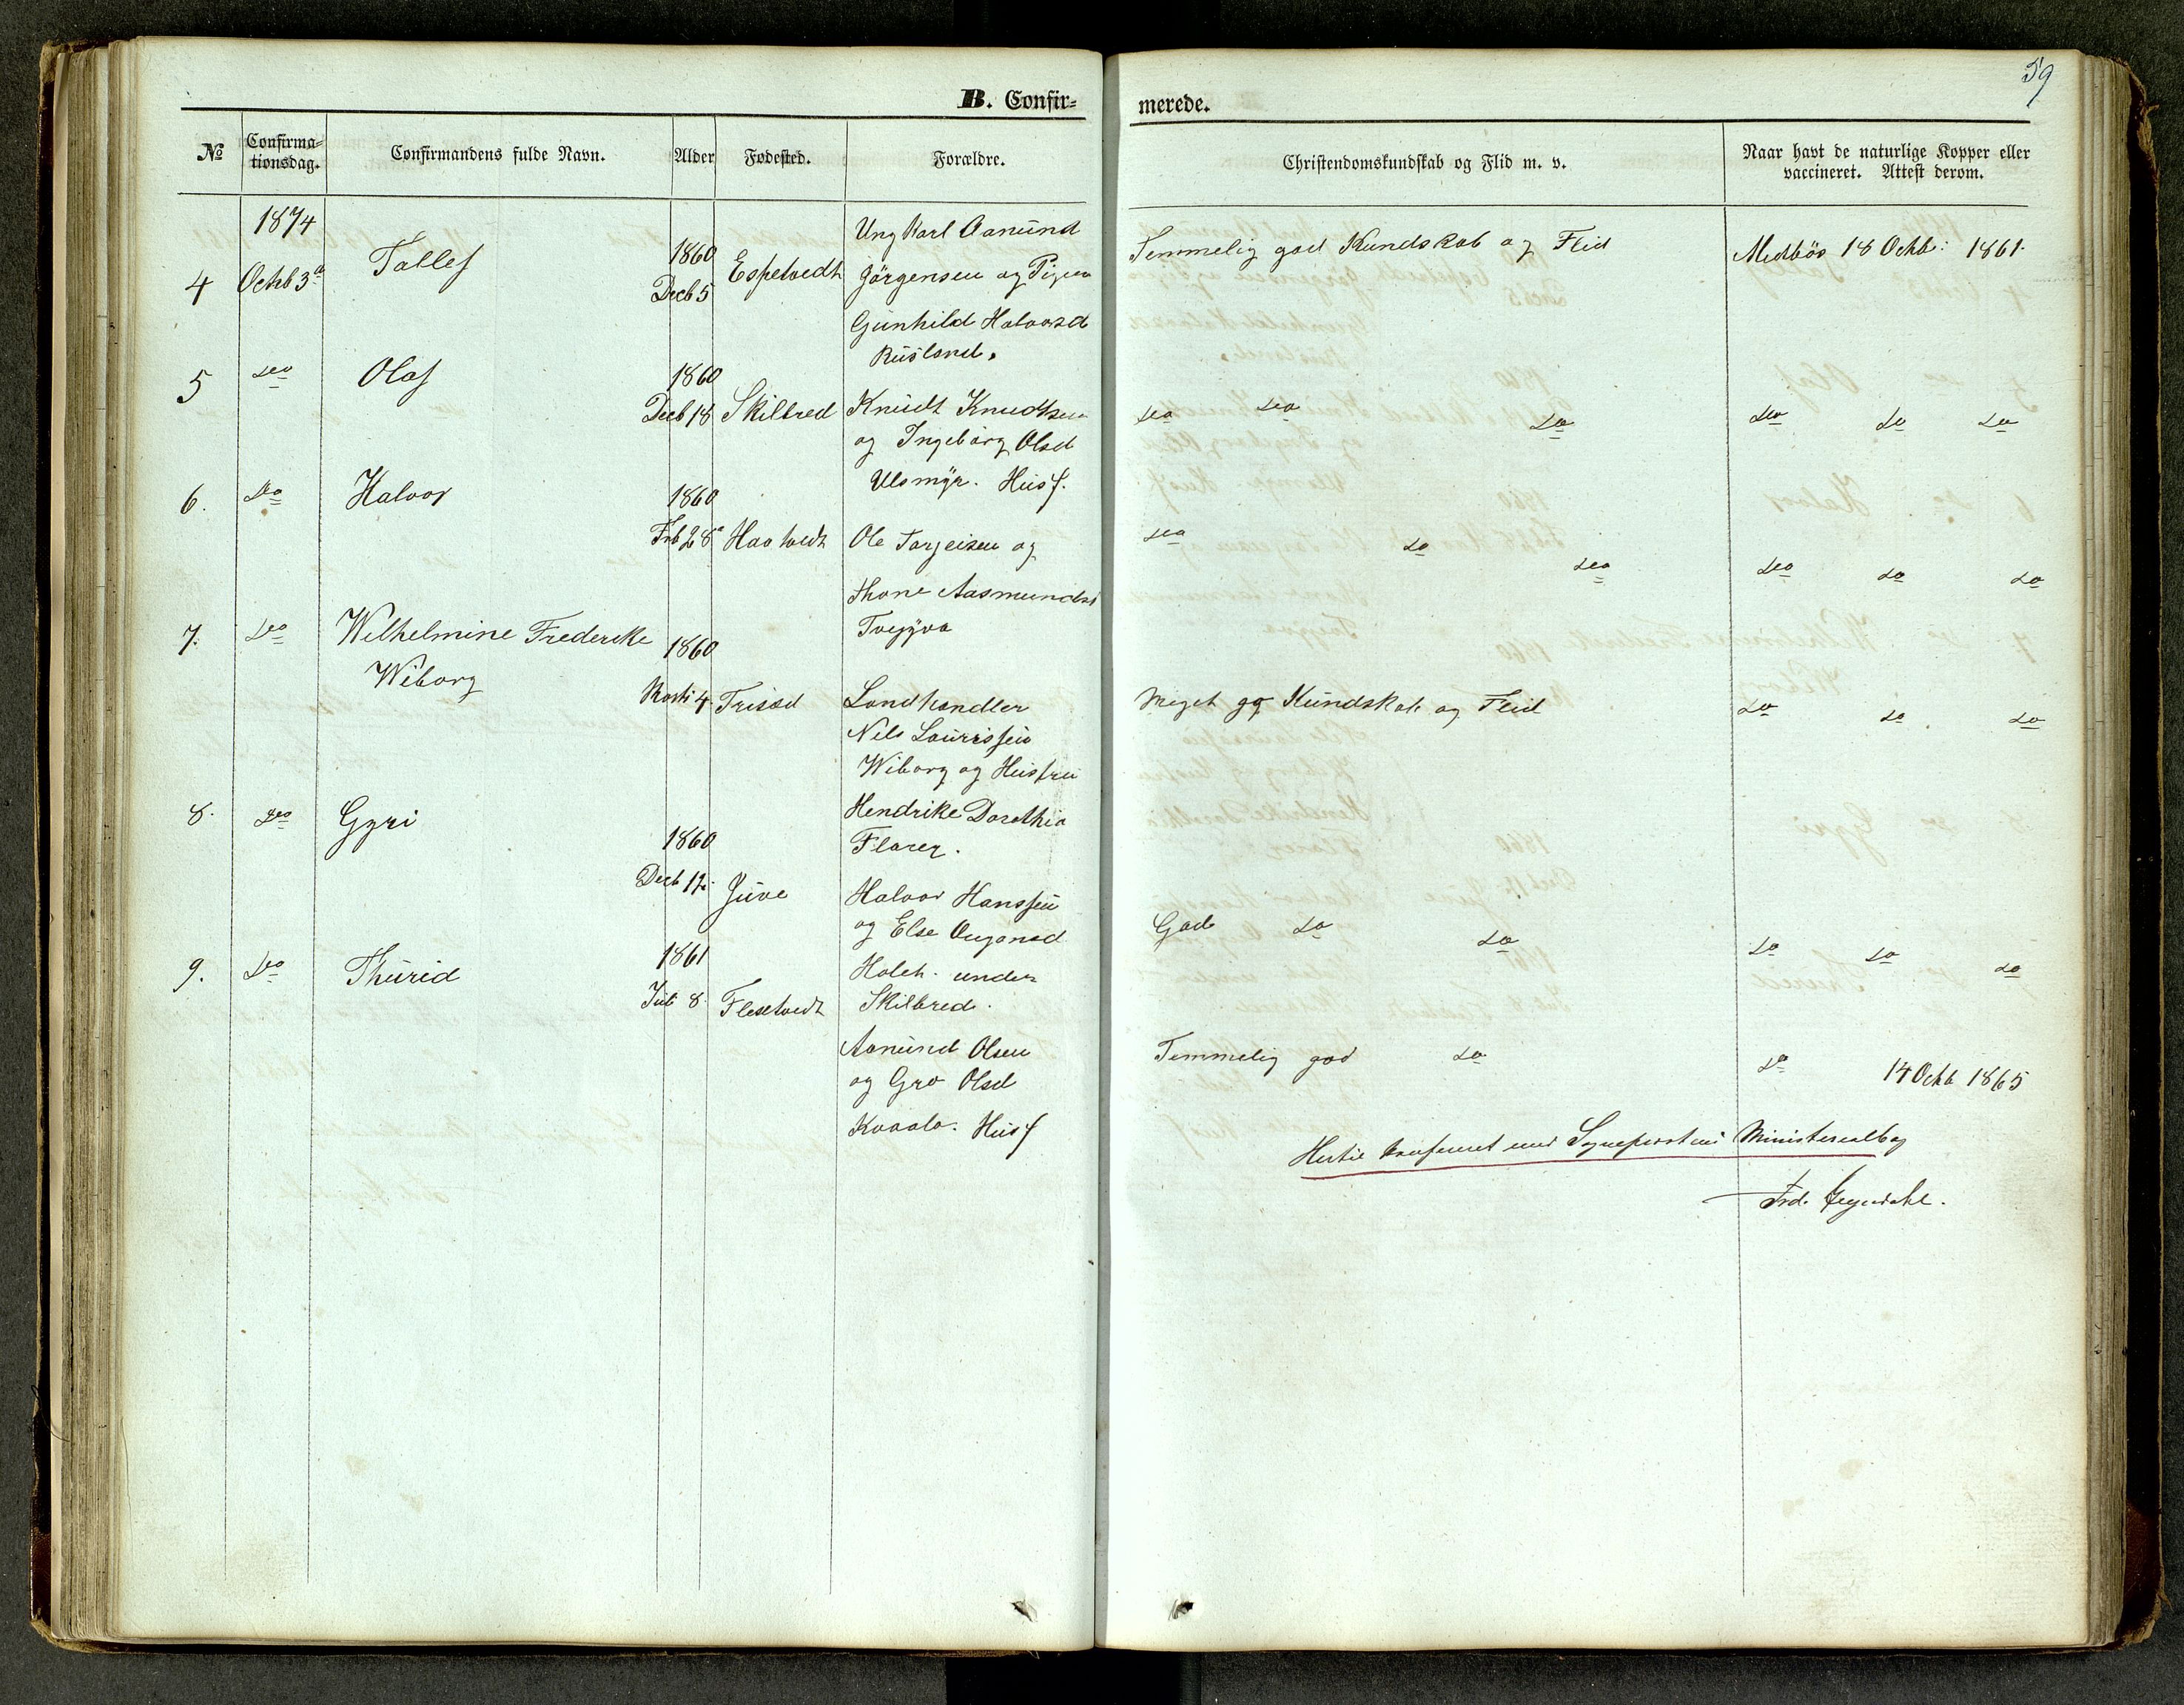 59
B. Confir-
merede.
№ Confirma-tionsdag. Confirmandens fulde Navn. Alder Fødested. Forældre.
Christendomskundskab og Flid m. v. Naar havt de naturlige Kopper eller vaccineret. Attest derom.
1874
4 Octb 3die Tallef 1860 Decb 5 Espetvedt Ung Karl Aanund
Jørgensen og Pigen
Gunhild Halvorsd
Rusland.
Temmelig god Kundskab og Flid 18 Octb: 1861.
5 do Olaf 1860
Decb 18 Skilbred Knudt Knudtsen
og Ingeborg Olsd
Ulsmyr. Husf.
do do do do do do
6. do Halvor 1860
Feb 28 Haatvedt Ole Tarjeisen og
Thone Aasmundsd
do do do do do do
7. do Wilhelmine Frederike
Wiborg
1860
Marti 4 Trisæd Landhandler
Nils Lauritssen
Wiborg og Hustru
Hendrike Dorethia
Florer.
Meget god Kundskab og Flid do do do
8. do Gyri
1860
Decb 12. Juve Halvor Hanssen
og Else Ougonsd
Holth. under
Skilbred.
God do do do do do
9. do Thurid 1861
Juli 8. Flesetvedt
Aanund Olsen
og Gro Olsd
Kvaale. Husf
Temmelig god do do 14 Octb 1865
Hertil konfereret med Sognepræstens Ministerialbog